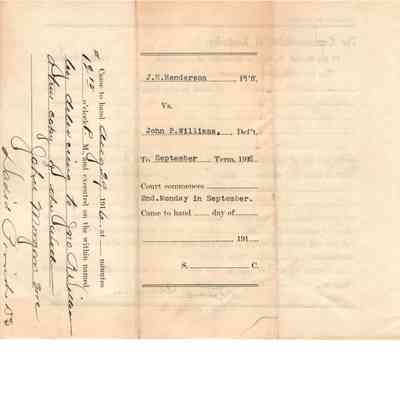 J.H.Henderson, Pl'ff,
Vs.
John P.Williams, Def't.
To September Term, 191
Court commences
2nd.Monday in September.
Came to hand day of
191
S. C.
Came to hand Aug 29 1916, at minutes
o'clock P. M. and executed on the within named
by delivering to Jno P. Williams
a true copy of the
John Morgan
Davis